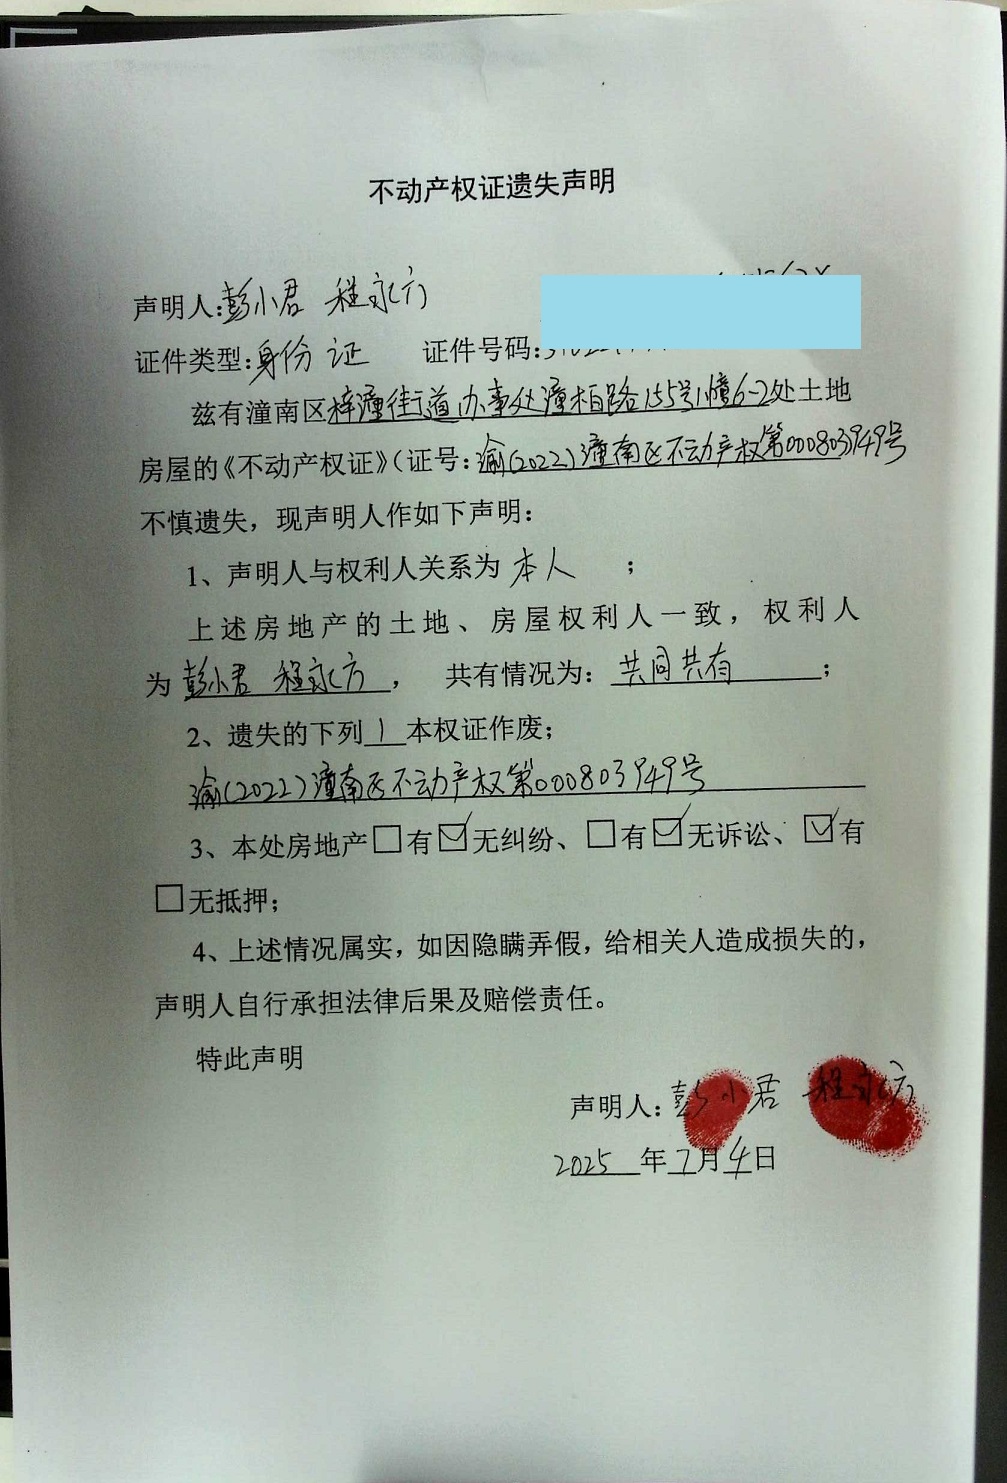 不动产权证遗失声明
声明人:彭小君 程永方
证件类型:身份证 证件号码:
兹有潼南区梓潼街道办事处潼柏路155号1幢6-2处土地
房屋的《不动产权证》(证号:渝(2022)潼南区不动产权第000803949号
不慎遗失，现声明人作如下声明：
1、声明人与权利人关系为 本人 ；
上述房地产的土地、房屋权利人一致，权利人
为 彭小君 程永方 ， 共有情况为： 共同共有 ；
2、遗失的下列 1 本权证作废；
渝(2022)潼南区不动产权第000803949号
3、本处房地产☐有☑无纠纷、☐有☑无诉讼、☑有
☐无抵押；
4、上述情况属实，如因隐瞒弄假，给相关人造成损失的，
声明人自行承担法律后果及赔偿责任。
特此声明
声明人：彭小君 程永方
2025 年 7 月 4 日